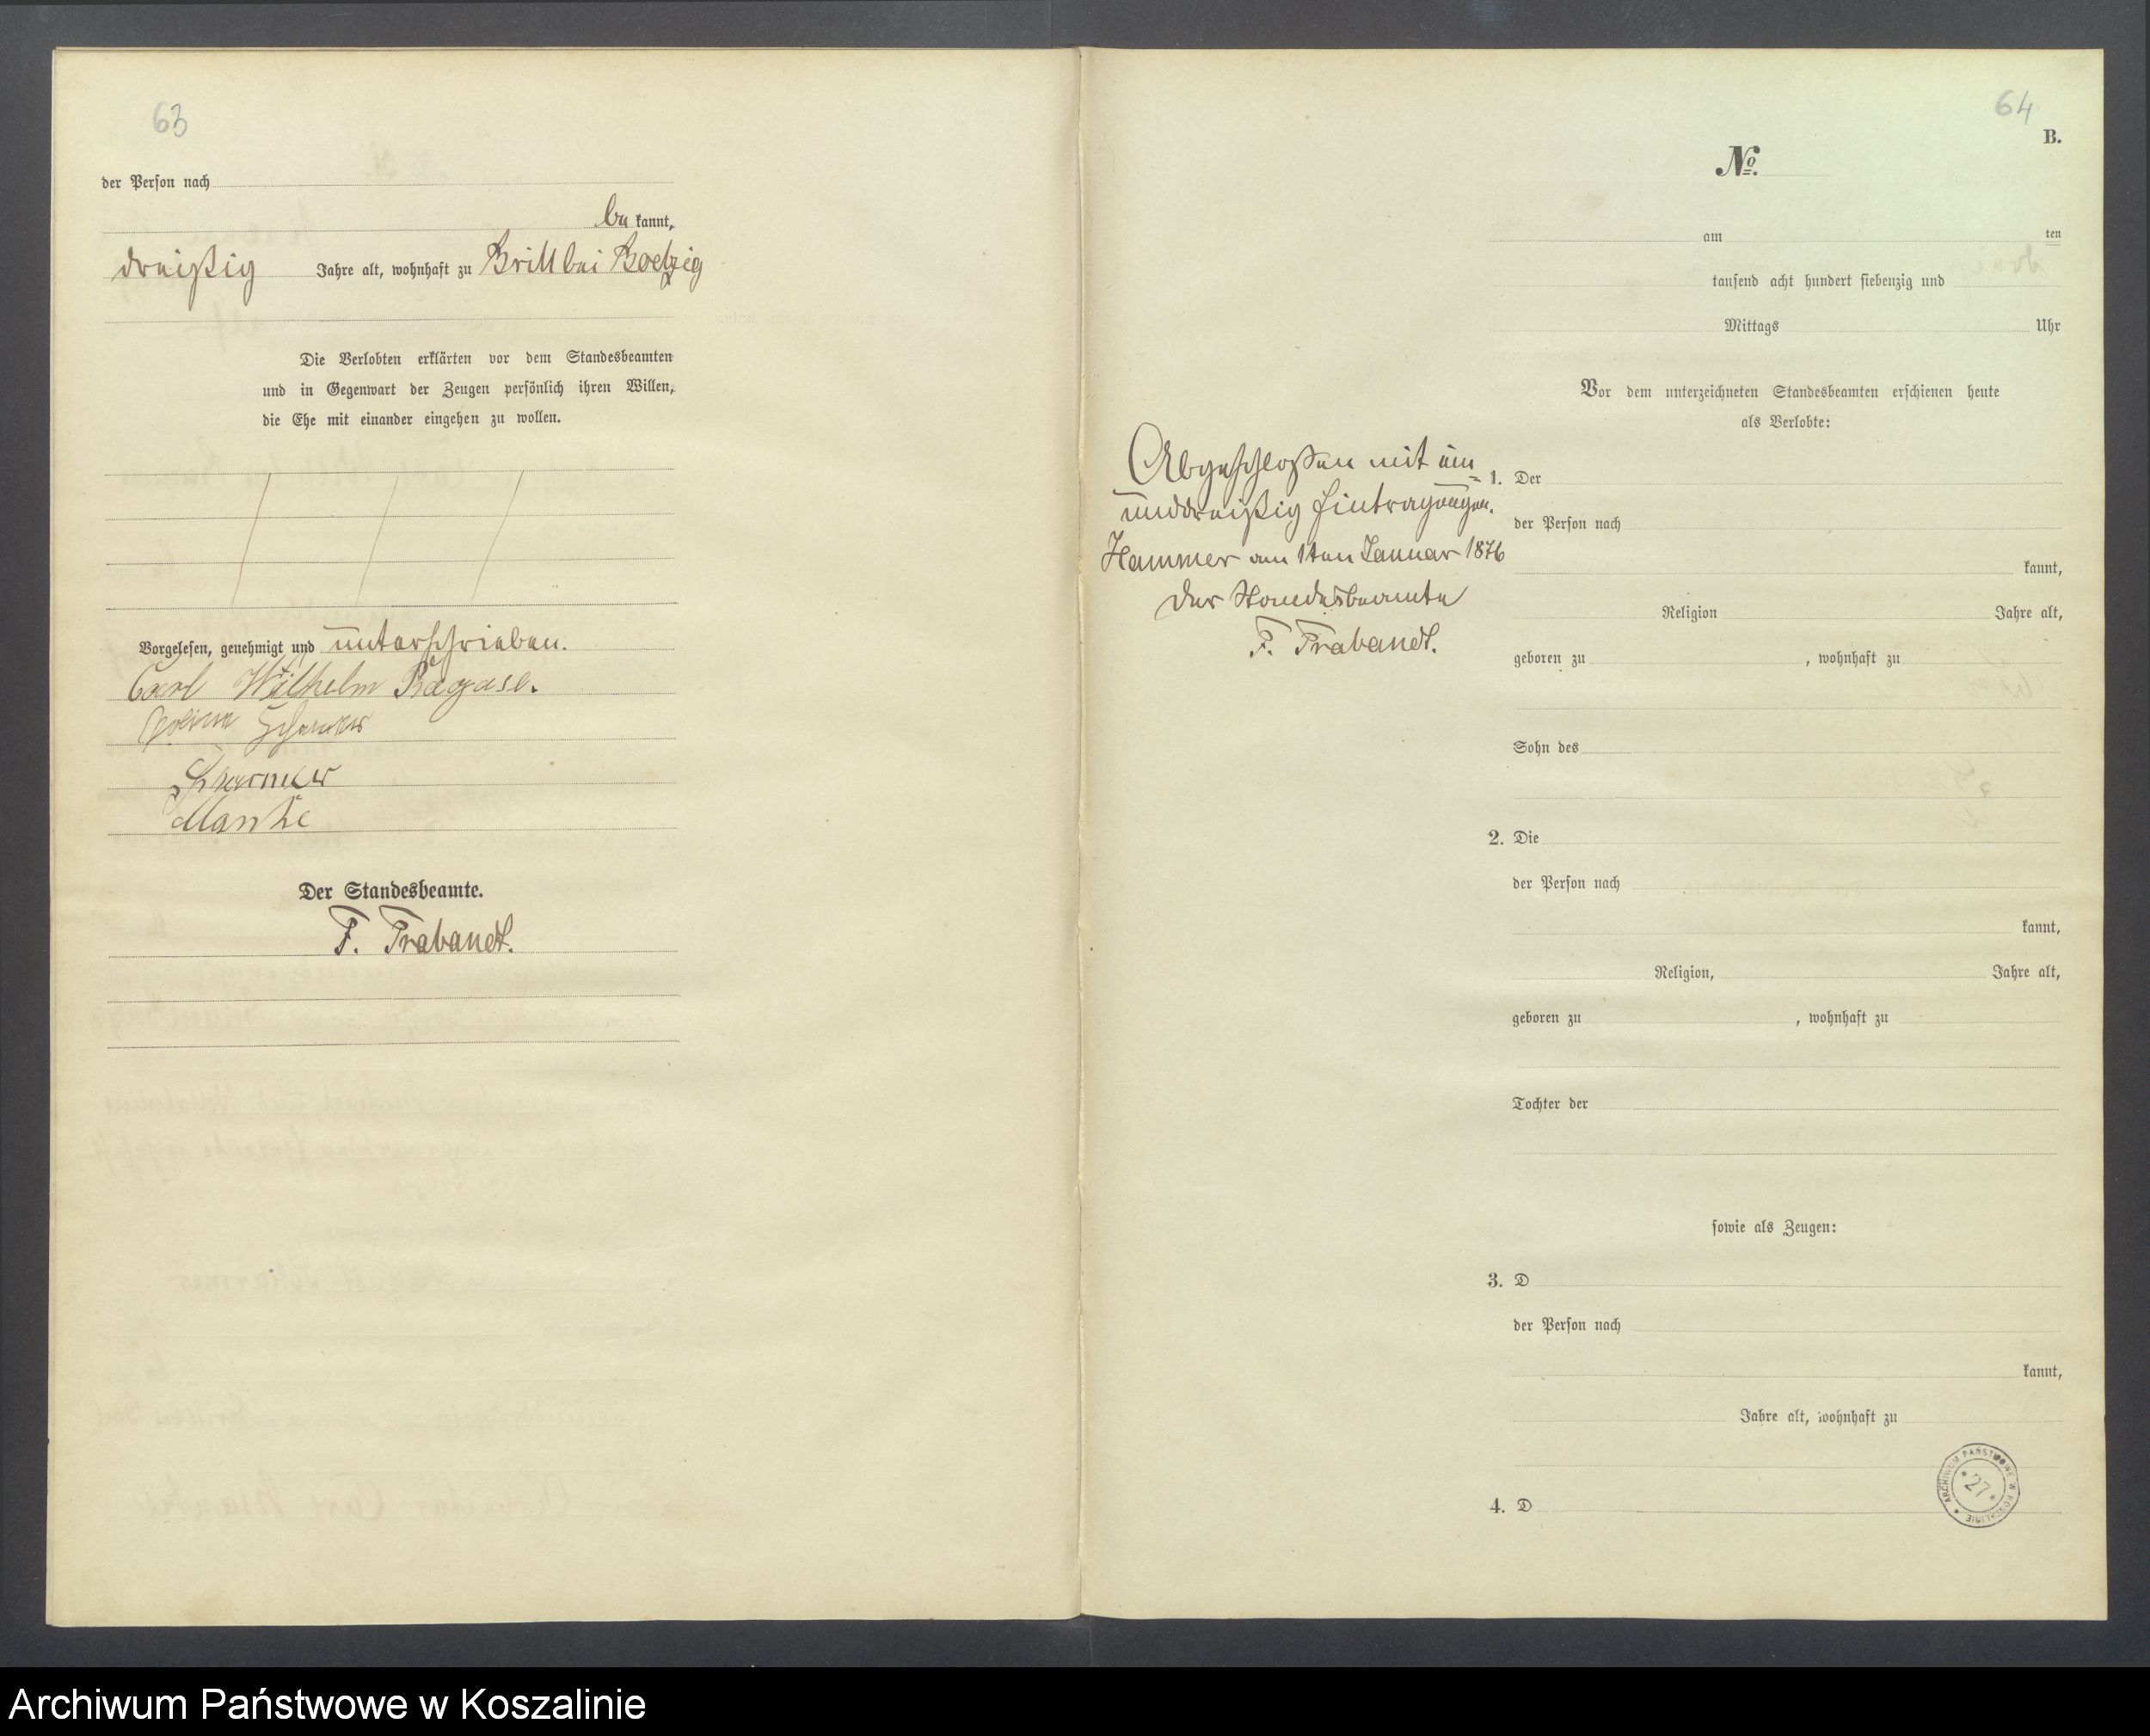 63
der Person nach
be kannt,
dreißig Jahre alt, wohnhaft zu Brill bei Boetzig
Die Verlobten erklärten vor dem Standesbeamten
und in Gegenwart der Zeugen persönlich ihren Willen,
die Ehe mit einander eingehen zu wollen.
Vorgelesen, genehmigt und unterschrieben.
Carl Wilhelm Ragase.
Manke
Der Standesbeamte.
F. Trabandt.
64
B.
No.
am ten
tausend acht hundert siebenzig und
Mittags Uhr
Vor dem unterzeichneten Standesbeamten erschienen heute
als Verlobte:
Abgeschloßen mit ein=
unddreißig Eintragungen.
Hammer am 1ten Januar 1876
Der Standesbeamte
F. Trabandt.
1. Der
der Person nach
kannt,
Religion Jahre alt,
geboren zu , wohnhaft zu
Sohn des
2. Die
der Person nach
kannt,
Religion, Jahre alt,
geboren zu , wohnhaft zu
Tochter der
sowie als Zeugen:
3. D
der Person nach
kannt,
Jahre alt, wohnhaft zu
4. D
ARCHIWUM PAŃSTWOWE W KOSZALINIE
* 27 *
Archiwum Państwowe w Koszalinie